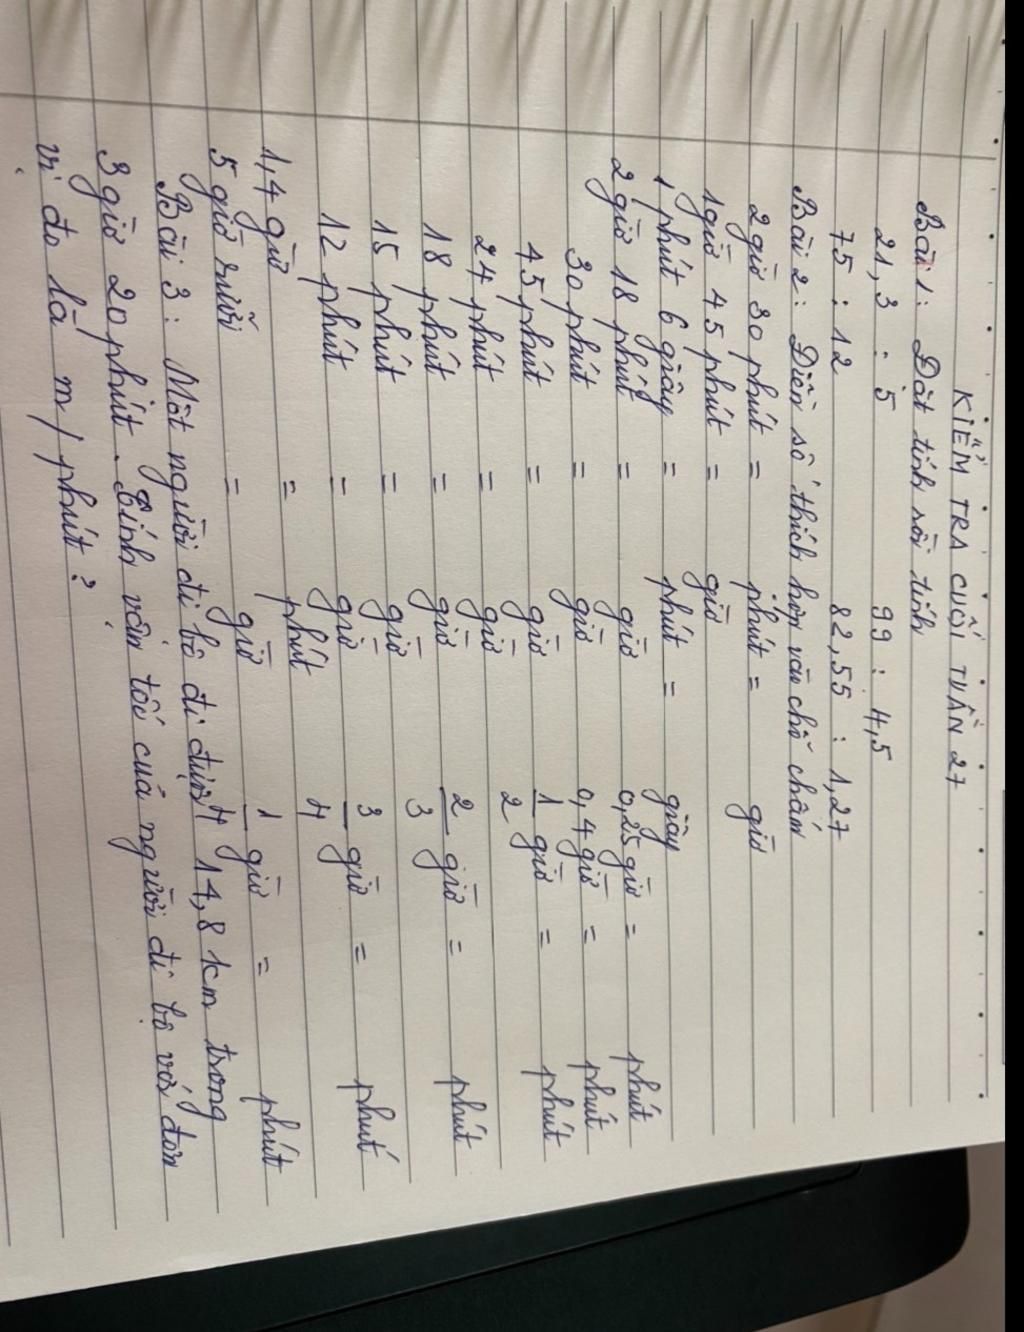 KIỂM TRA CUỐI TUẦN 27
Bài 1: Đặt tính rồi tính
21,3 : 5 99 : 4,5
75 : 12 82,55 : 1,27
Bài 2: Điền số thích hợp vào chỗ chấm
2 giờ 30 phút = phút = giờ
1 giờ 45 phút = giờ
1 phút 6 giây = phút = giây
2 giờ 18 phút = giờ 0,25 giờ = phút
30 phút = giờ 0,4 giờ = phút
45 phút = giờ 1/2 giờ = phút
24 phút = giờ
18 phút = giờ 2/3 giờ = phút
15 phút = giờ
12 phút = giờ 3/4 giờ = phút
1,4 giờ = phút
5 giờ rưỡi = giờ 1/4 giờ = phút
Bài 3: Một người đi bộ đi được 14,8 km trong
3 giờ 20 phút. Tính vận tốc của người đi bộ với đơn
vị đo là m/phút?